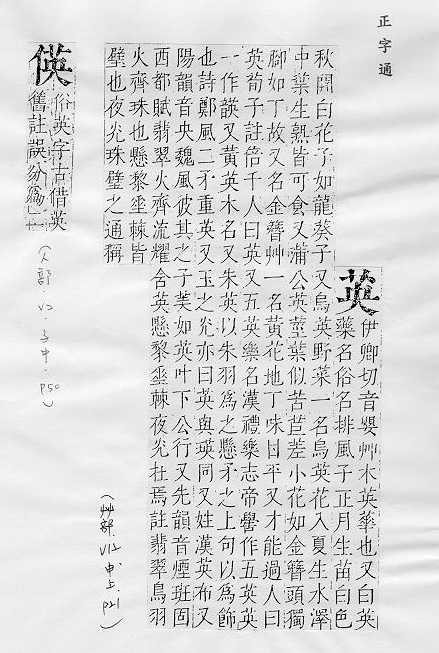 正字通
英
伊卿切音嬰艸木英華也又白英
藥名俗名排風子正月生苗白色
秋開白花子如龍葵子又烏英野菜一名烏英花入夏生水澤
中葉生熟皆可食又蒲公英莖葉似苦苣差小花如金簪頭獨
腳如丁故又名金簪艸一名黃花地丁味甘平又才能過人曰
英荀子註倍千人曰英又五英樂名漢禮樂志帝嚳作五英英
一作韺又黃英木名又朱英以朱羽爲之懸矛之上句以爲飾
也詩鄭風二矛重英又玉之光亦曰英與瑛同又姓漢英布又
陽韻音央魏風彼其之子美如英叶下公行又先韻音煙班固
西都賦翡翠火齊流耀含英懸黎垂棘夜光在焉註翡翠鳥羽
火齊珠也懸黎垂棘皆
璧也夜光珠璧之通稱
(艸部. V12 申上. P21)
偀
俗英字古借英
舊註誤分爲二
(人部 V2. 子中. P50)